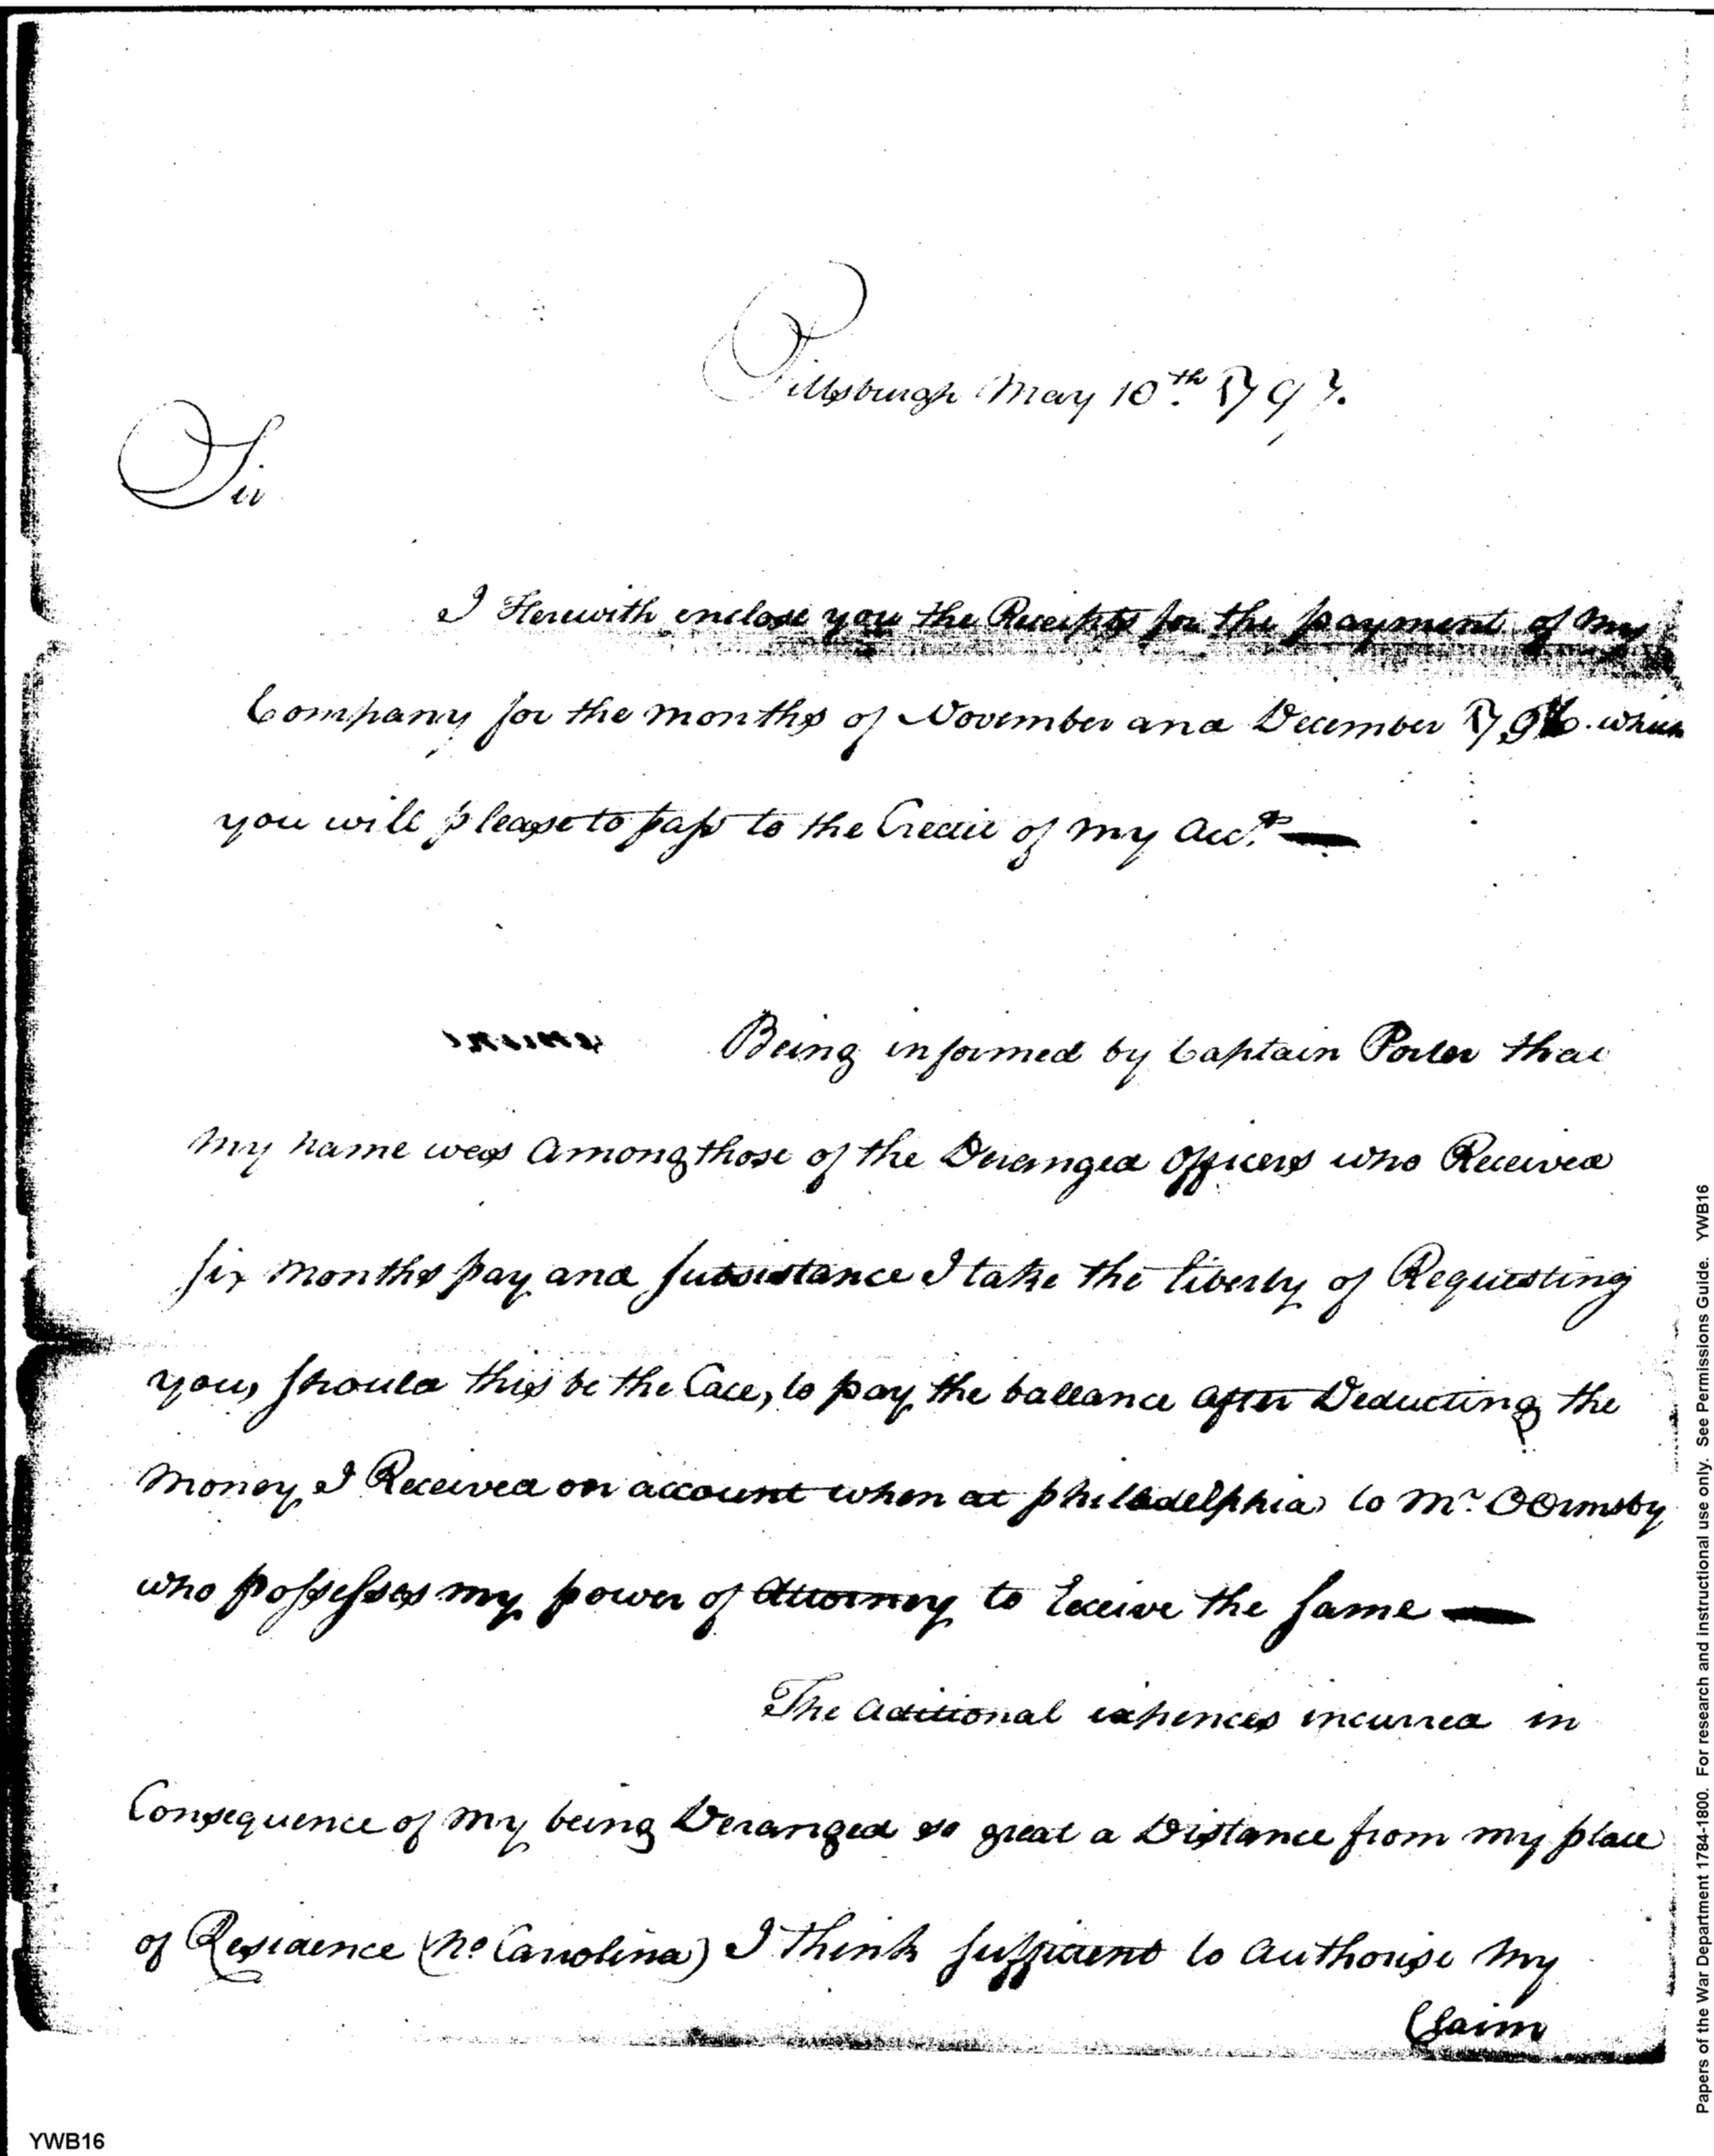 Pittsburgh May 10th 1797.
Sir
I Herewith enclose you the Receipts for the payment of my
Company for the months of November and December 1796. which
you will please to pass to the Credit of my Acct.
Being informed by Captain Porter that
my name was among those of the Deranged officers who Received
six months pay and subsistance I take the liberty of Requesting
you, should this be the Case, to pay the ballance after Deducting the
money I Received on account when at philadelphia to Mr. O Ormsby
who possesses my power of Attorney to receive the same
The aditional expences incurred in
Consequence of my being Deranged so great a Distance from my place
of Residence (No Carrolina) I think sufficient to authorise my
Claim
Papers of the War Department 1784-1800. For research and instructional use only. See Permissions Guide. YWB16
YWB16